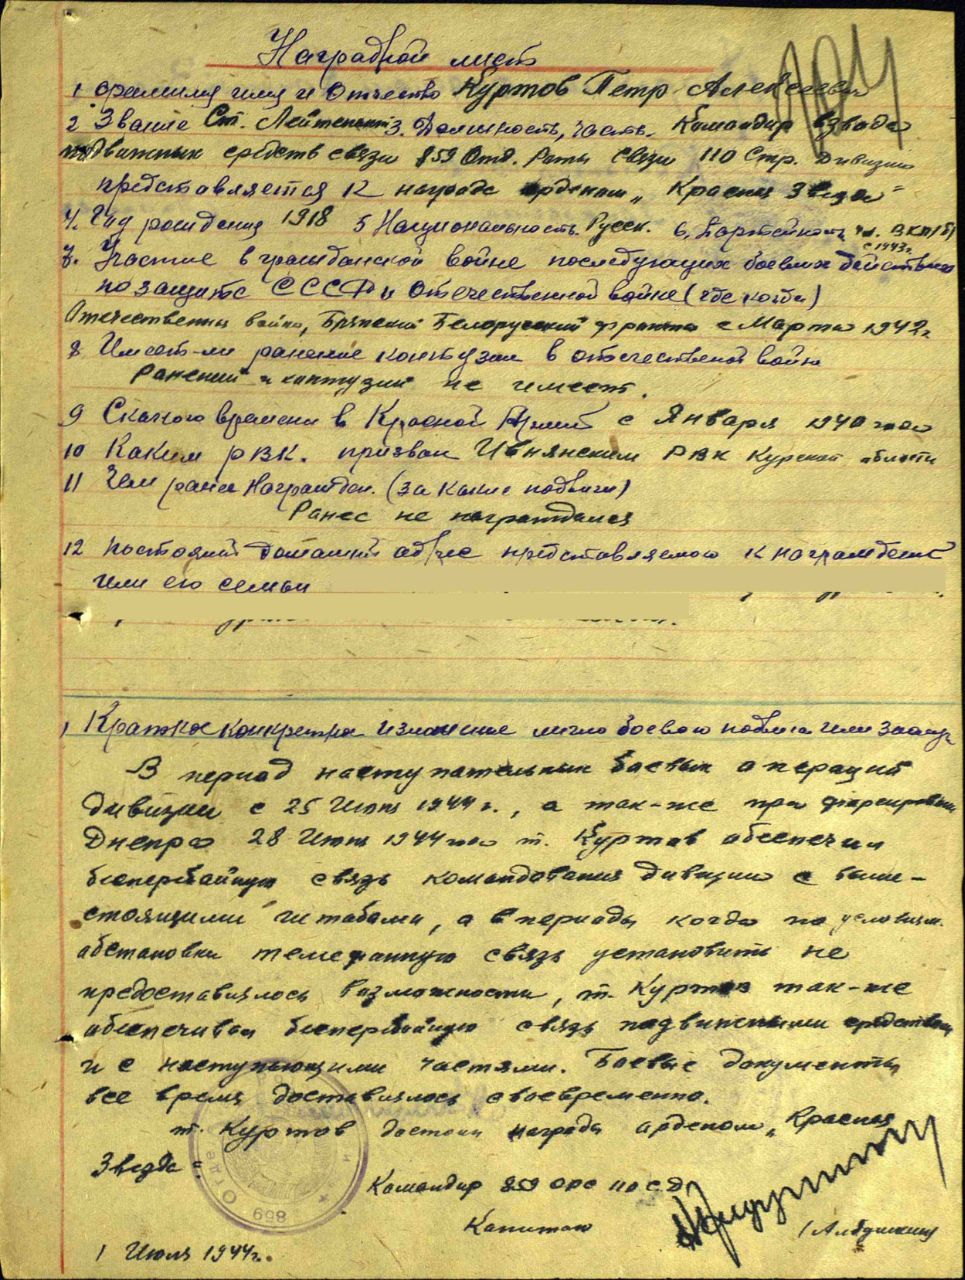 Наградной лист
1 Фамилия имя и Отчество Куртов Петр Алексеевич
2 Звание Ст. Лейтенант 3. Должность, часть. Командир взвода
подвижных средств связи 859 Отд. Роты Связи 110 Стр. Дивизии
представляется к награде орденом „Красная Звезда"
4. Год рождения 1918 5 Национальность. Русск. 6. Партийность чл. ВКП(б)
с 1943г.
7. Участие в гражданской войне последующих боевых действиях
по защите СССР и отечественной войне (где когда)
Отечественная война, Брянский Белорусский фронты с Марта 1942г
8 Имеет-ли ранение контузии в отечественной войне
Ранений и контузий не имеет.
9 С какого времени в Красной Армии с Января 1940 года
10 Каким РВК. призван Ивнянским РВК Курской области
11 Чем ранее Награжден. (за какие подвиги)
Ранее не награждался
12 постоянный домашний адрес представляемого к награждению
или его семьи
1 Краткое конкретное изложение личного боевого подвига или заслуг
В период наступательных боевых операций
дивизии с 25 Июня 1944г., а так-же при форсировании
Днепра 28 Июня 1944 года т. Куртов обеспечил
бесперебойную связь командования дивизии с выше-
стоящими штабами, а в периоды когда по условиям
обстановки телефонную связь установить не
предоставлялось возможности, т. Куртов так-же
обеспечивал бесперебойную связь подвижными средствами
и с наступающими частями. Боевые документы
все время доставлялось своевременно.
т. Куртов достоин награды орденом „Красная
Звезда".
Командир 859 ОРС 110 СД
Капитан
1 Июля 1944г.
859